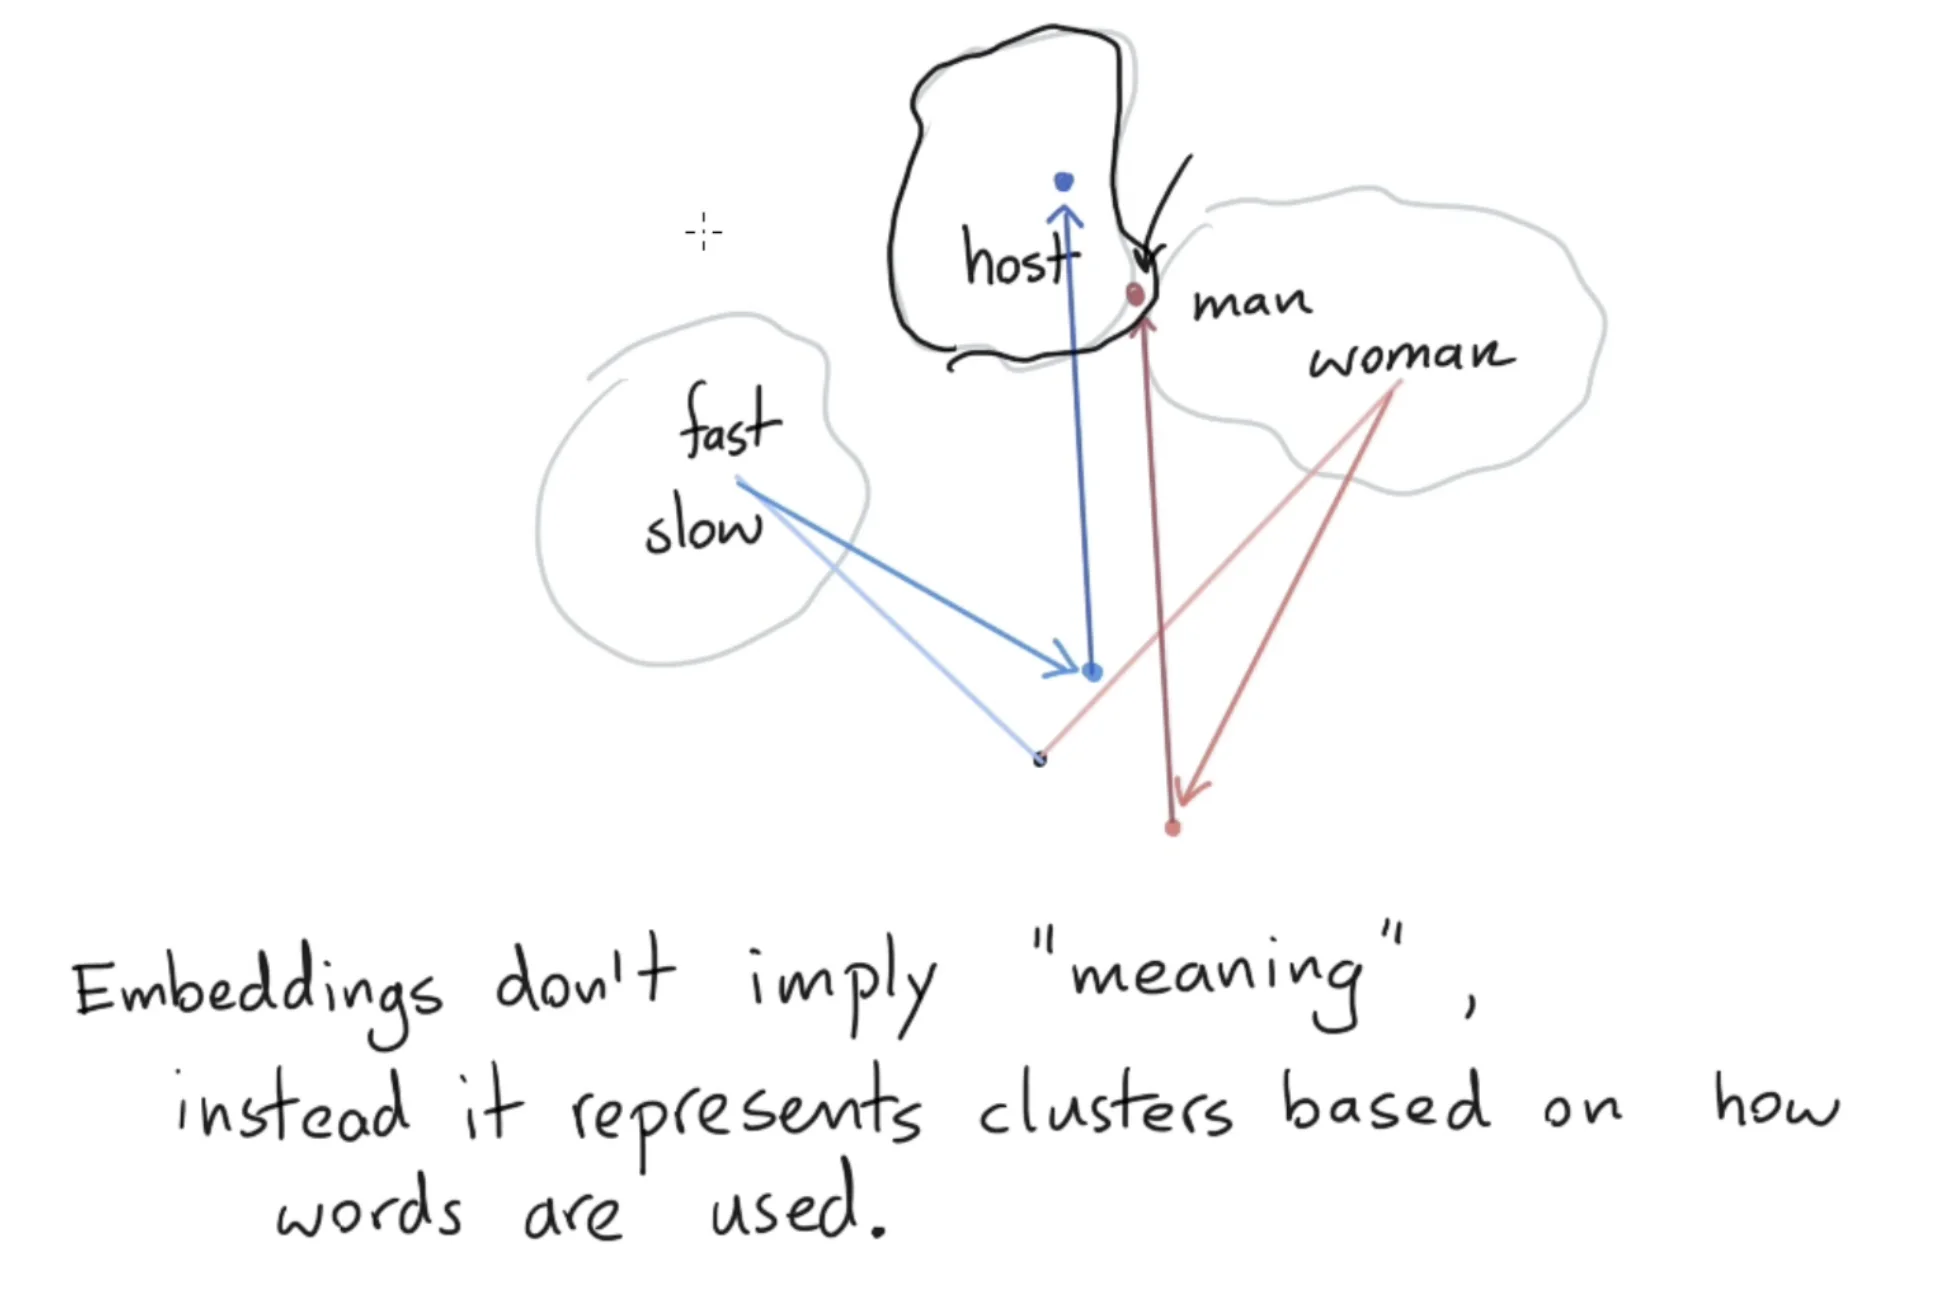 host
man
woman
fast
slow
Embeddings don't imply "meaning",
instead it represents clusters based on how
words are used.